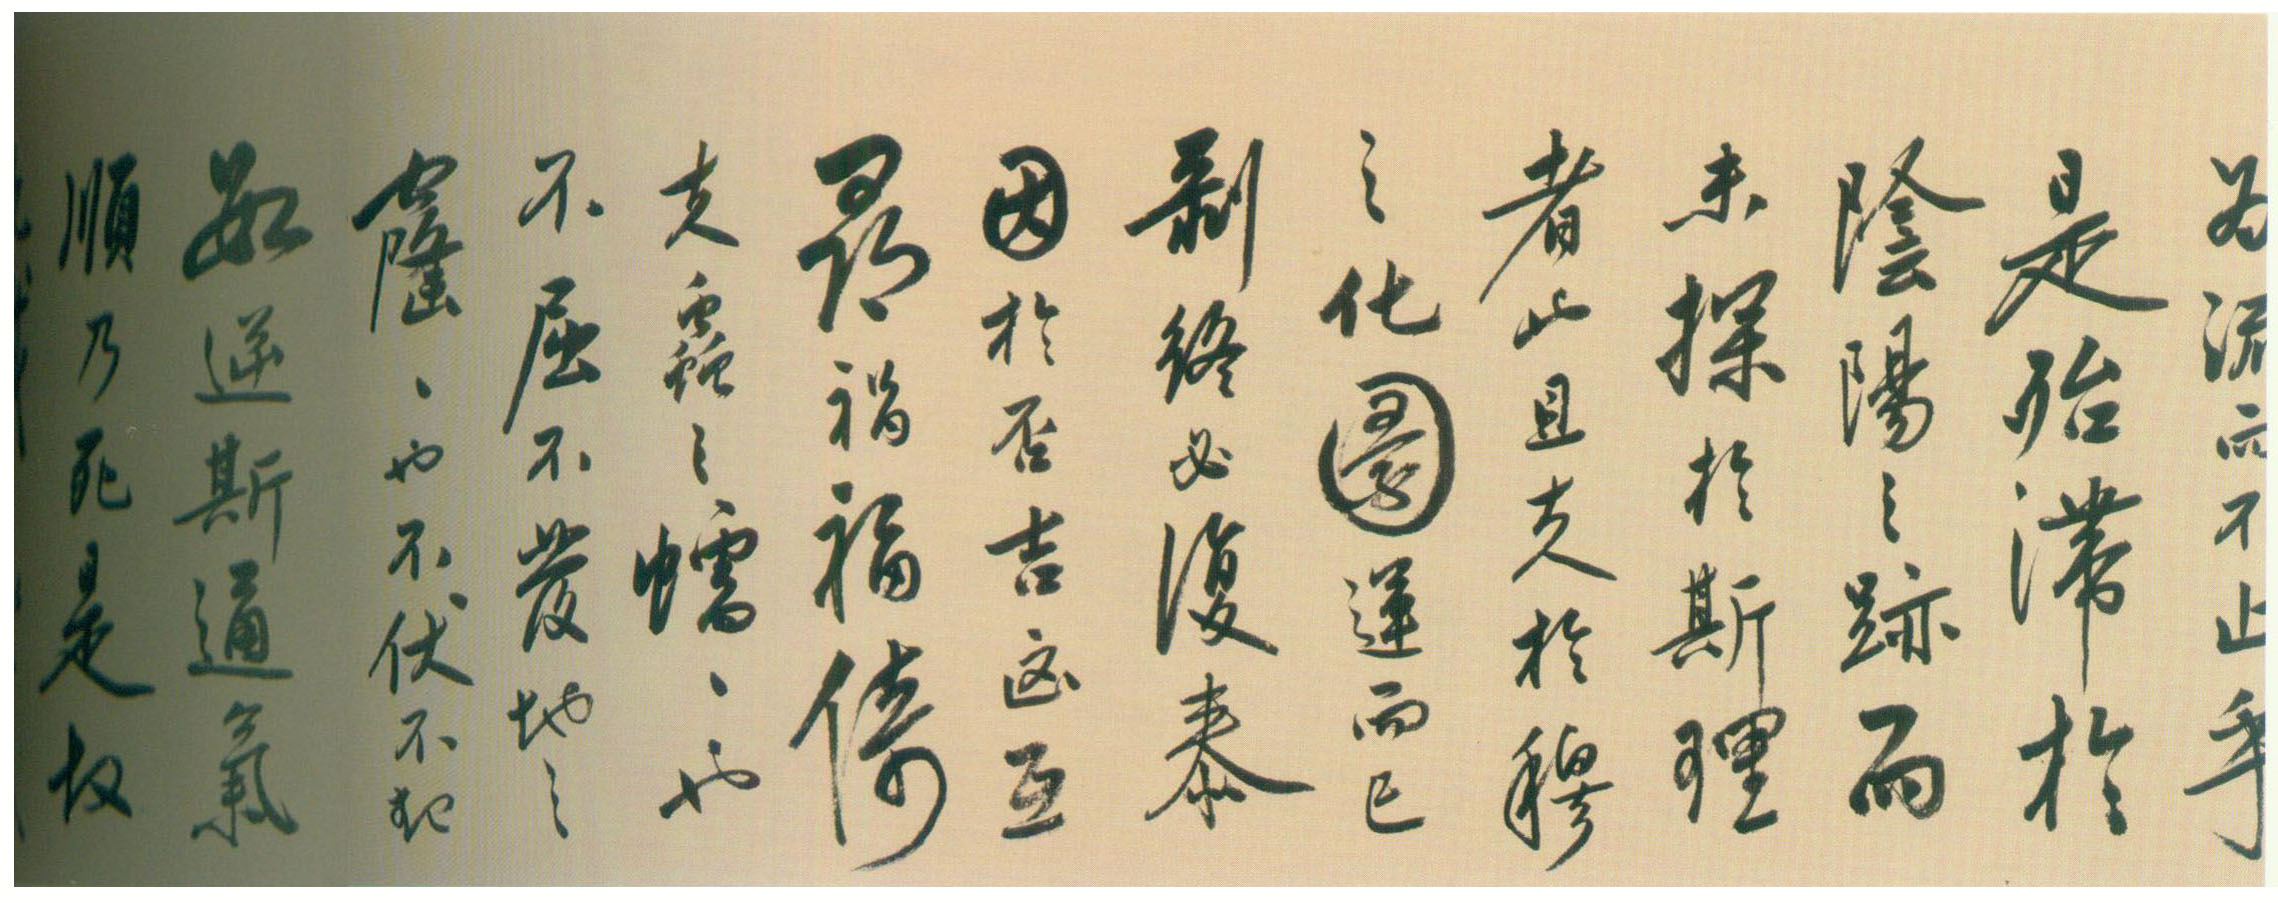 為流而不止乎
是殆滯於
陰陽之跡而
未探於斯理
者也且夫於穆
之化圜運而已
剥終必復泰
因於否吉凶互
尋禍福倚
夫蠶之蠕、也
不屈不發地之
窿、也不伏不
逆斯通氣
順乃死是故